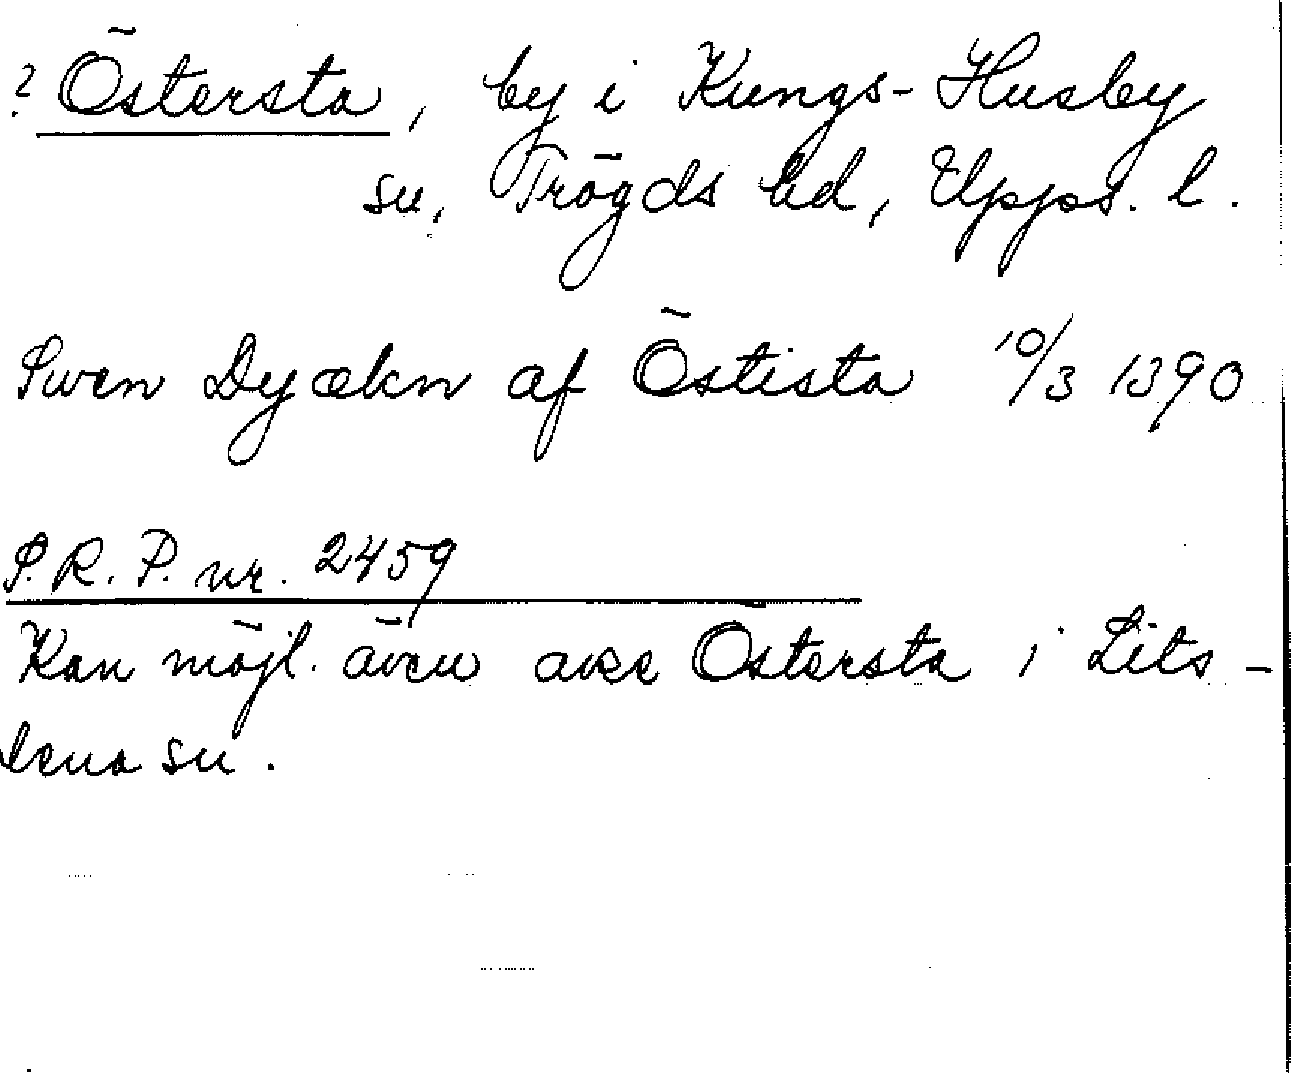 ? Östersta, by i Kungs-Husby
sn, Trögds hd, Upps. l.
Swen Dyækn af Östista 10/3 1390
S.R.P. nr. 2459
Kan möjl. även avse Östersta i Lits-
lena sn.